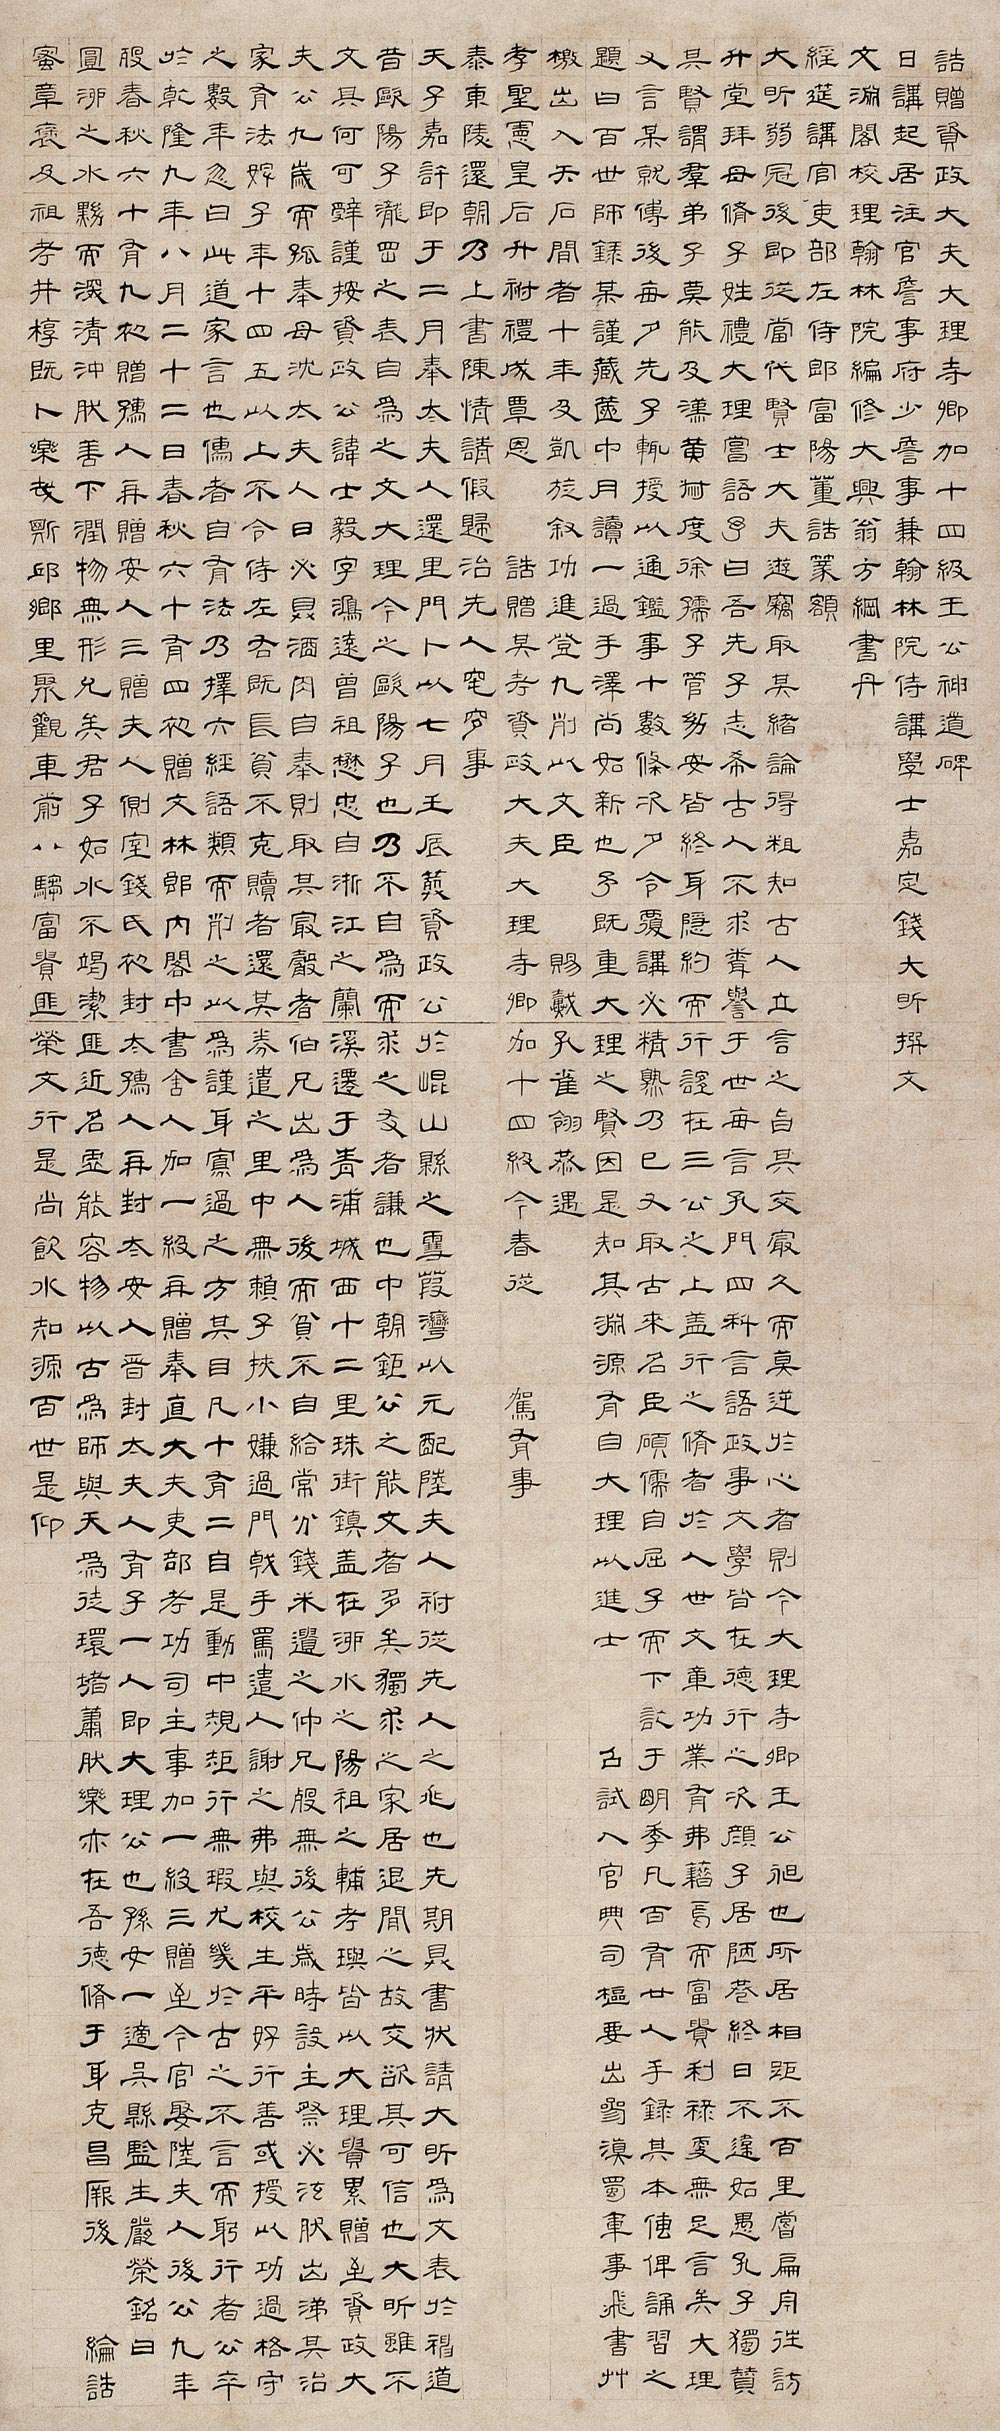 誥贈資政大夫大理寺卿加十四級王公神道碑
日講起居注官詹事府少詹事兼翰林院侍講學士嘉定錢大昕撰文
文淵閣校理翰林院編修大興翁方綱書丹
經筵講官吏部左侍郎富陽董誥篆額
大昕弱冠後即從當代賢士大夫遊竊取其緒論得粗知古人立言之旨其交最久而莫逆於心者則今大理寺卿王公昶也所居相距不百里嘗扁舟往訪
升堂拜母脩子姓禮大理嘗語予曰吾先子志希古人不求聲譽于世每言孔門四科言語政事文學皆在德行之次顏子居陋巷終日不違如愚孔子獨贊
其賢謂羣弟子莫能及漢黃叔度徐孺子管幼安皆終身隱約而行誼在三公之上盖行之脩者於人世文章功業有弗藉焉而富貴利祿更無足言矣大理
又言某就傅後每夕先子輒授以通鑑事十數條次夕令覆講必精熟乃已又取古來名臣碩儒自屈子而下訖于明季凡百有廿人手錄其本傳俾誦習之
題曰百世師錄某謹藏篋中月讀一過手澤尚如新也予既重大理之賢因是知其淵源有自大理以進士 召試入官典司樞要出參滇蜀軍事飛書艸
檄出入矢石間者十年及凱旋敘功進登九列以文臣 賜戴孔雀翎恭遇
孝聖憲皇后升祔禮成覃恩 誥贈其考資政大夫大理寺卿加十四級今春從 駕有事
泰東陵還朝乃上書陳情請假歸治先人窀穸事
天子嘉許即于二月奉太夫人還里門卜以七月壬辰葬資政公於崑山縣之雪葭灣以元配陸夫人祔從先人之兆也先期具書狀請大昕為文表於神道
昔歐陽子瀧岡之表自為之文大理今之歐陽子也乃不自為而求之友者謙也中朝鉅公之能文者多矣獨求之家居退閒之故交欲其可信也大昕雖不
文其何可辭謹按資政公諱士毅字鴻遠曾祖懋忠自浙江之蘭溪遷于青浦城西十二里珠街鎮盖在泖水之陽祖之輔考璵皆以大理貴累贈至資政大
夫公九歲而孤奉母沈太夫人日必具酒肉自奉則取其最觳者伯兄出為人後而貧不自給常分錢米遺之仲兄殷無後公歲時設主祭必泫肰出涕其治
家有法婢子年十四五以上不令侍左右既長貧不克贖者還其券遣之里中無賴子挾小嫌過門戟手罵遣人謝之弗與校生平好行善或授以功過格守
之數年忽曰此道家言也儒者自有法乃擇六經語類而削之以為謹身寡過之方其目凡十有二自是動中規矩行無瑕尤幾於古之不言而躬行者公卒
於乾隆九年八月二十二日春秋六十有四初贈文林郎內閣中書舍人加一級再贈奉直大夫吏部考功司主事加一級三贈至今官娶陸夫人後公九年
歿春秋六十有九初贈孺人再贈安人三贈夫人側室錢氏初封太孺人再封太安人晉封太夫人有子一人即大理公也孫女一適吳縣監生嚴榮銘曰
圓泖之水夥而深清沖肰善下潤物無形允矣君子如水不竭潔匪近名虛能容物以古為師與天為徒環堵蕭肰樂亦在吾德脩于身克昌厥後 綸誥
蜜章褒及祖考井椁既卜樂哉斯邱鄉里聚觀車前八騶富貴匪榮文行是尚飲水知源百世是仰